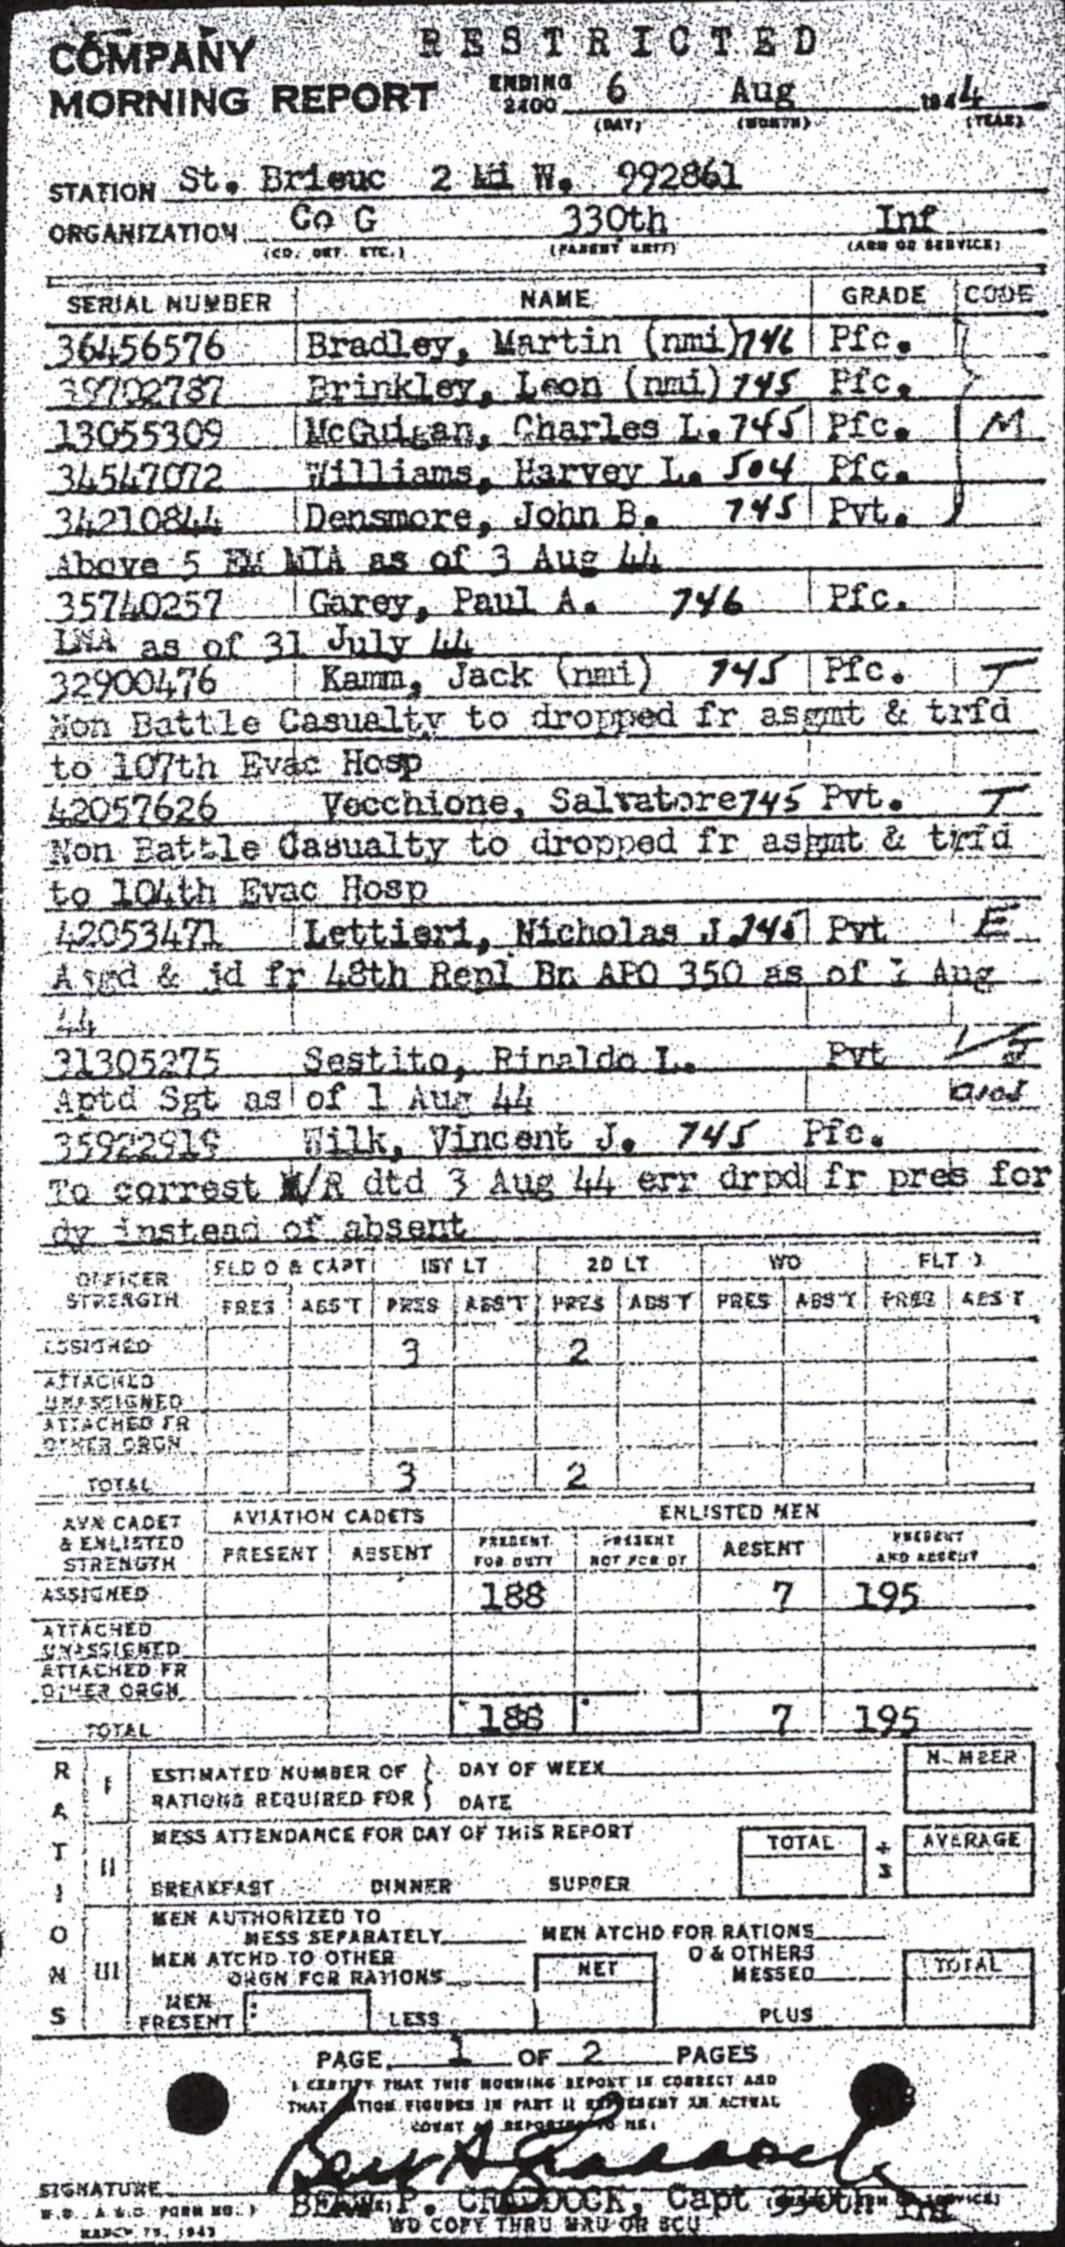 RESTRICTED
COMPANY
MORNING REPORT ENDING 2400 6 Aug 1944
(DAY) (MONTH) (YEAR)
STATION St. Brieuc 2 Mi W. 992861
ORGANIZATION Co G 330th Inf
(CO. DET. ETC.) (PARENT UNIT) (ARM OR SERVICE)
SERIAL NUMBER NAME GRADE CODE
36456576 Bradley, Martin (nmi) 746 Pfc.
39702787 Brinkley, Leon (nmi) 745 Pfc.
13055309 McGuigan, Charles L. 745 Pfc. M
34547072 Williams, Harvey L. 504 Pfc.
34210844 Densmore, John B. 745 Pvt.
Above 5 EM MIA as of 3 Aug 44
35740257 Garey, Paul A. 746 Pfc.
LWA as of 31 July 44
32900476 Kamm, Jack (nmi) 745 Pfc. T
Non Battle Casualty to dropped fr asgmt & trfd
to 107th Evac Hosp
42057626 Vecchione, Salvatore 745 Pvt. T
Non Battle Casualty to dropped fr asgmt & trfd
to 104th Evac Hosp
42053471 Lettieri, Nicholas J. 745 Pvt E
Asgd & jd fr 48th Repl Bn APO 350 as of 1 Aug
44
31305275 Sestito, Rinaldo L. Pvt
Aptd Sgt as of 1 Aug 44
35922919 Wilk, Vincent J. 745 Pfc.
To correst M/R dtd 3 Aug 44 err drpd fr pres for
dy instead of absent
OFFICER STRENGTH FLD O & CAPT 1ST LT 2D LT WO FLT O
PRES ABS'T PRES ABS'T PRES ABS'T PRES ABS'T PRES ABS'T
ASSIGNED 3 2
ATTACHED UNASSIGNED
ATTACHED FR OTHER ORGN
TOTAL 3 2
AVN CADET & ENLISTED STRENGTH AVIATION CADETS ENLISTED MEN
PRESENT ABSENT PRESENT FOR DUTY PRESENT NOT FOR DY ABSENT PRESENT AND ABSENT
ASSIGNED 188 7 195
ATTACHED UNASSIGNED
ATTACHED FR OTHER ORGN
TOTAL 188 7 195
RATIONS
I ESTIMATED NUMBER OF RATIONS REQUIRED FOR DAY OF WEEK DATE NUMBER
II MESS ATTENDANCE FOR DAY OF THIS REPORT TOTAL ÷ 3 AVERAGE
BREAKFAST DINNER SUPPER
III MEN AUTHORIZED TO MESS SEPARATELY MEN ATCHD FOR RATIONS
MEN ATCHD TO OTHER ORGN FOR RATIONS NET O & OTHERS MESSED TOTAL
MEN PRESENT LESS PLUS
PAGE 1 OF 2 PAGES
I CERTIFY THAT THIS MORNING REPORT IS CORRECT AND
THAT RATION FIGURES IN PART II REPRESENT AN ACTUAL
COUNT AS REPORTED TO ME:
SIGNATURE
BERT P. CRADDOCK, Capt 330th Inf
W.D., A.G.O. FORM NO. 1
MARCH 1943
WD COPY THRU MRU OR SCU